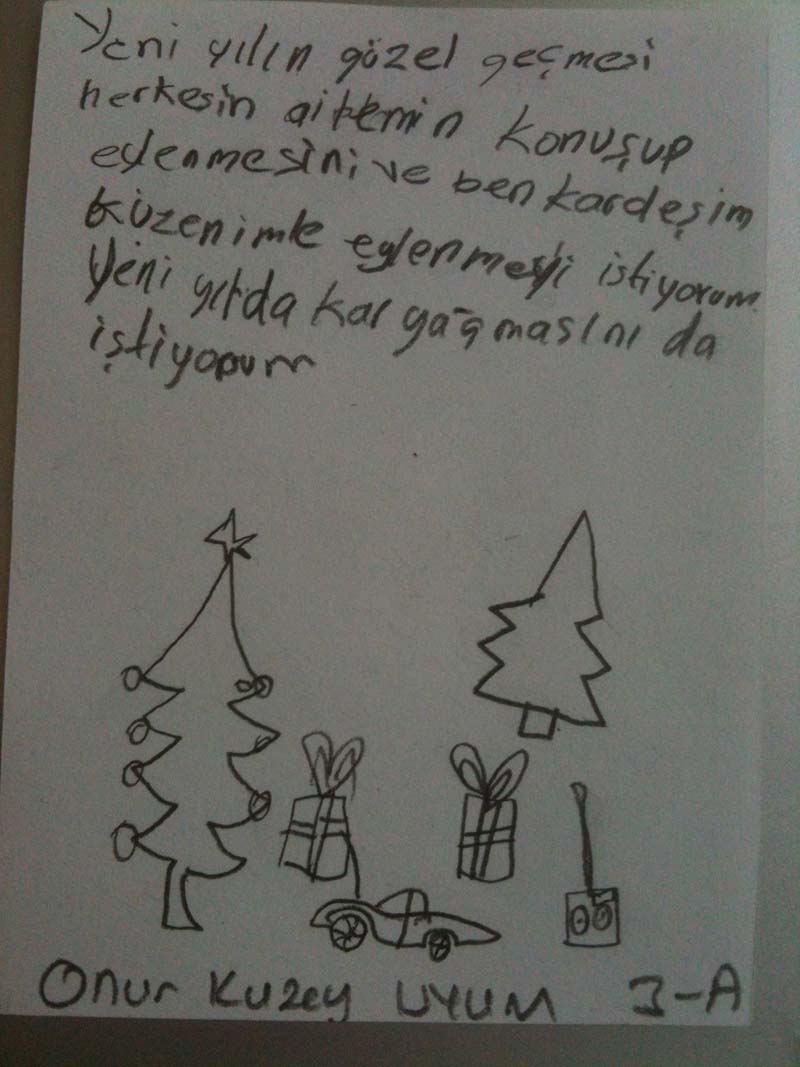 Yeni yılın güzel geçmesi
herkesin ailemin konuşup
eylenmesini ve ben kardeşim
kuzenimle eylenmeyi istiyorum
Yeni yılda kar yağmasını da
iştiyorum
Onur Kuzey UYUM 3-A